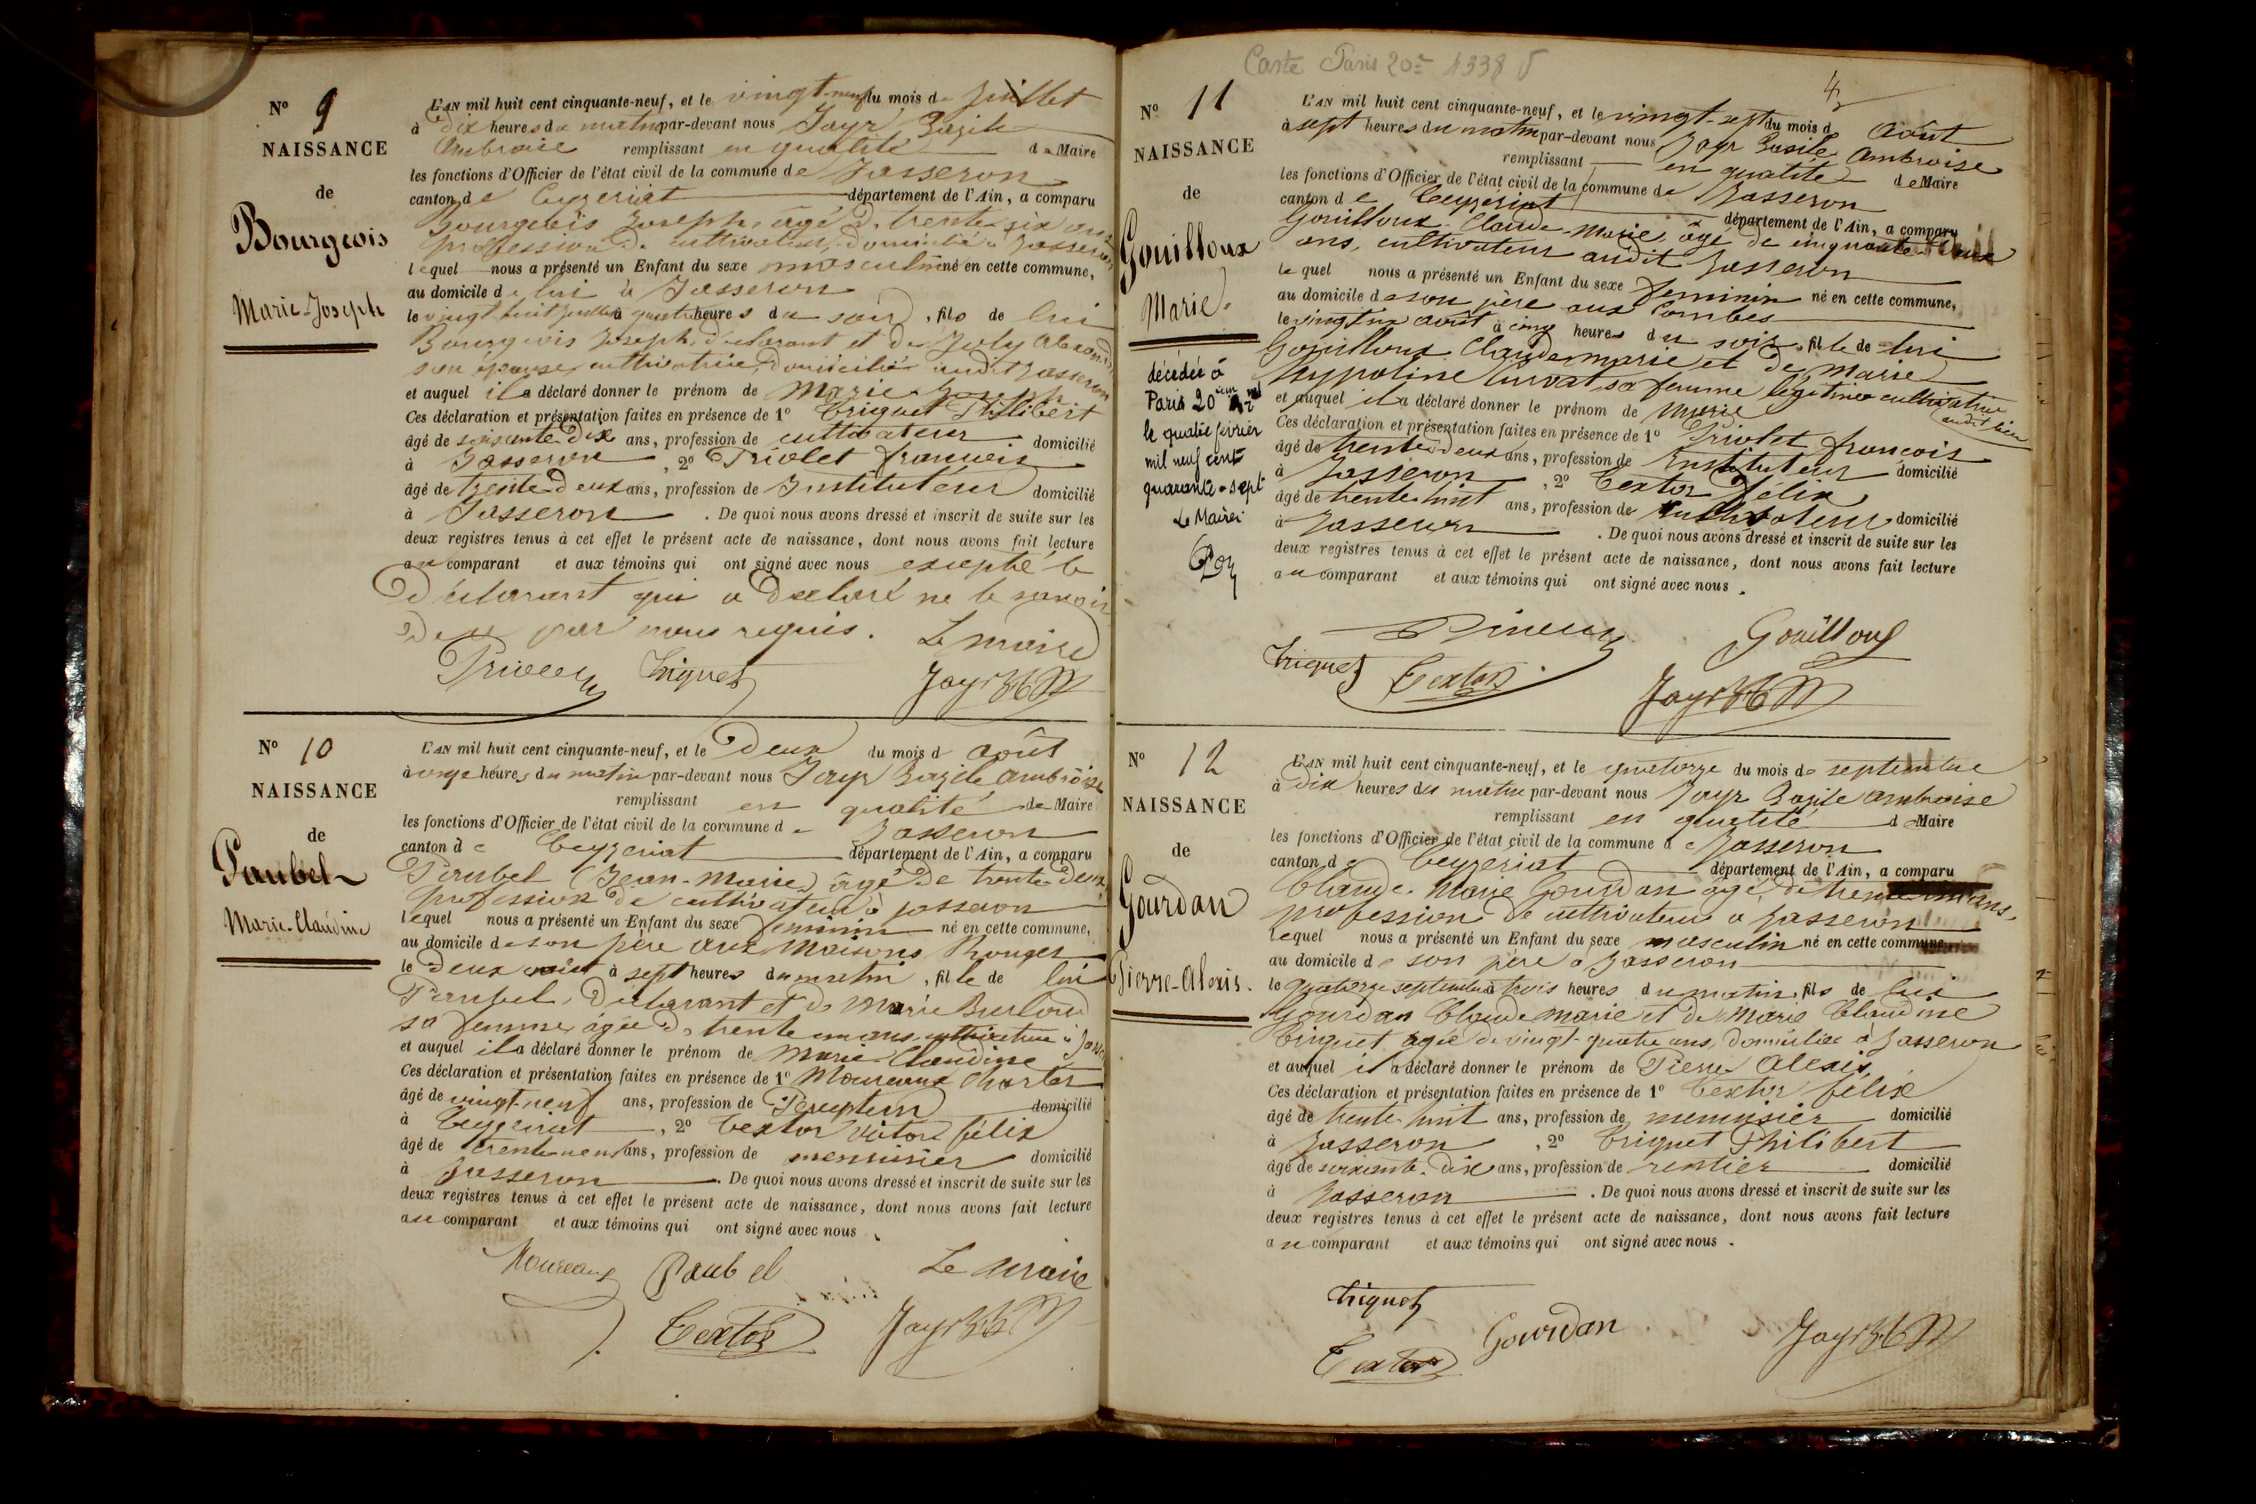 N° 9
NAISSANCE
de
Bourgeois
Marie-Joseph
L'AN mil huit cent cinquante-neuf, et le vingt-neuf du mois de Juillet
à Dix heures du matin par-devant nous Jayr Bazile
Ambroise remplissant en qualité de Maire
les fonctions d'Officier de l'état civil de la commune de Jasseron
canton de Ceyzeriat département de l'Ain, a comparu
Bourgeois Joseph, âgé de trente six ans
profession de cultivateur, domicilié à Jasseron
lequel nous a présenté un Enfant du sexe masculin né en cette commune,
au domicile de lui à Jasseron
le vingt huit juillet à quatre heures du soir, fils de lui
Bourgeois Joseph déclarant et de Joly
son épouse cultivatrice, domiciliée audit Jasseron
et auquel il a déclaré donner le prénom de Marie Joseph
Ces déclaration et présentation faites en présence de 1° Triquet Philibert
âgé de soixante Dix ans, profession de cultivateur domicilié
à Jasseron, 2° Priolet françois
âgé de trente Deux ans, profession de Instituteur domicilié
à Jasseron. De quoi nous avons dressé et inscrit de suite sur les
deux registres tenus à cet effet le présent acte de naissance, dont nous avons fait lecture
au comparant et aux témoins qui ont signé avec nous excepté le
Déclarant qui a Déclaré ne le savoir
De ce par nous requis. Le maire
Triquet Jayr
N° 10
NAISSANCE
de
Paubel
Marie-Claudine
L'AN mil huit cent cinquante-neuf, et le Deux du mois d août
à onze heures du matin par-devant nous Jayr Bazile ambroise
remplissant en qualité de Maire
les fonctions d'Officier de l'état civil de la commune de Jasseron
canton de Ceyzeriat département de l'Ain, a comparu
Paubel (Jean-Marie) âgé de trente Deux
profession de cultivateur à Jasseron
lequel nous a présenté un Enfant du sexe féminin né en cette commune,
au domicile de son père aux Maisons Rouges
le Deux août à sept heures du matin, fille de lui
Paubel, Déclarant et de Marie
sa femme âgée de trente un ans cultivatrice à
et auquel il a déclaré donner le prénom de Marie Claudine
Ces déclaration et présentation faites en présence de 1° Moureaux Charles
âgé de vingt-neuf ans, profession de Percepteur domicilié
à Ceyzeriat, 2° Textor Victor félix
âgé de ans, profession de menuisier domicilié
à Jasseron. De quoi nous avons dressé et inscrit de suite sur les
deux registres tenus à cet effet le présent acte de naissance, dont nous avons fait lecture
au comparant et aux témoins qui ont signé avec nous.
Moureaux Paubel Le maire
Textor Jayr
Carte Paris 20e 1338
4
N° 11
NAISSANCE
de
Gouilloux
Marie.
décédée à
Paris 20
le quatre février
mil neuf cent
quarante-sept
Le Maire:
L'AN mil huit cent cinquante-neuf, et le vingt-sept du mois d août
à sept heures du matin par-devant nous Jayr Basile Ambroise
remplissant en qualité de Maire
les fonctions d'Officier de l'état civil de la commune de Jasseron
canton de Ceyzériat département de l'Ain, a comparu
Gouilloux Claude-Marie, âgé de cinquante
ans, cultivateur audit Jasseron
lequel nous a présenté un Enfant du sexe féminin né en cette commune,
au domicile de son père aux Combes
le vingt six août à cinq heures du soir, fille de lui
Gouilloux Claude marie et de Marie
hyppoline Curvat sa femme légitime cultivatrice
audit lieu
et auquel il a déclaré donner le prénom de Marie
Ces déclaration et présentation faites en présence de 1° Priolet françois
âgé de trente Deux ans, profession de Instituteur domicilié
à Jasseron, 2° Textor félix
âgé de trente huit ans, profession de domicilié
à Jasseron. De quoi nous avons dressé et inscrit de suite sur les
deux registres tenus à cet effet le présent acte de naissance, dont nous avons fait lecture
au comparant et aux témoins qui ont signé avec nous.
Gouilloux
Triquet Textor Jayr
N° 12
NAISSANCE
de
Gourdan
Pierre-Alexis.
L'AN mil huit cent cinquante-neuf, et le quatorze du mois de septembre
à Dix heures du matin par-devant nous Jayr Bazile ambroise
remplissant en qualité de Maire
les fonctions d'Officier de l'état civil de la commune de Jasseron
canton de Ceyzeriat département de l'Ain, a comparu
Claude-Marie Gourdan âgé de ans,
profession de cultivateur à Jasseron
lequel nous a présenté un Enfant du sexe masculin né en cette commune
au domicile de son père à Jasseron
le quatorze septembre à trois heures du matin, fils de lui
Gourdan Claude marie et de Marie Claudine
Triquet agée de vingt-quatre ans, domiciliée à Jasseron
et auquel il a déclaré donner le prénom de Pierre Alexis
Ces déclaration et présentation faites en présence de 1° Textor félix
âgé de trente huit ans, profession de menuisier domicilié
à Jasseron, 2° Triquet Philibert
âgé de soixante-dix ans, profession de rentier domicilié
à Jasseron. De quoi nous avons dressé et inscrit de suite sur les
deux registres tenus à cet effet le présent acte de naissance, dont nous avons fait lecture
au comparant et aux témoins qui ont signé avec nous.
Triquet
Textor Gourdan Jayr